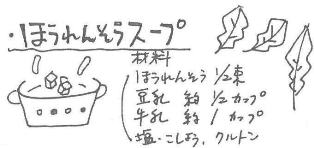 ・ほうれんそうスープ
材料
ほうれんそう 1/2束
豆乳 約 1/2カップ
牛乳 約 1カップ
塩・こしょう、クルトン